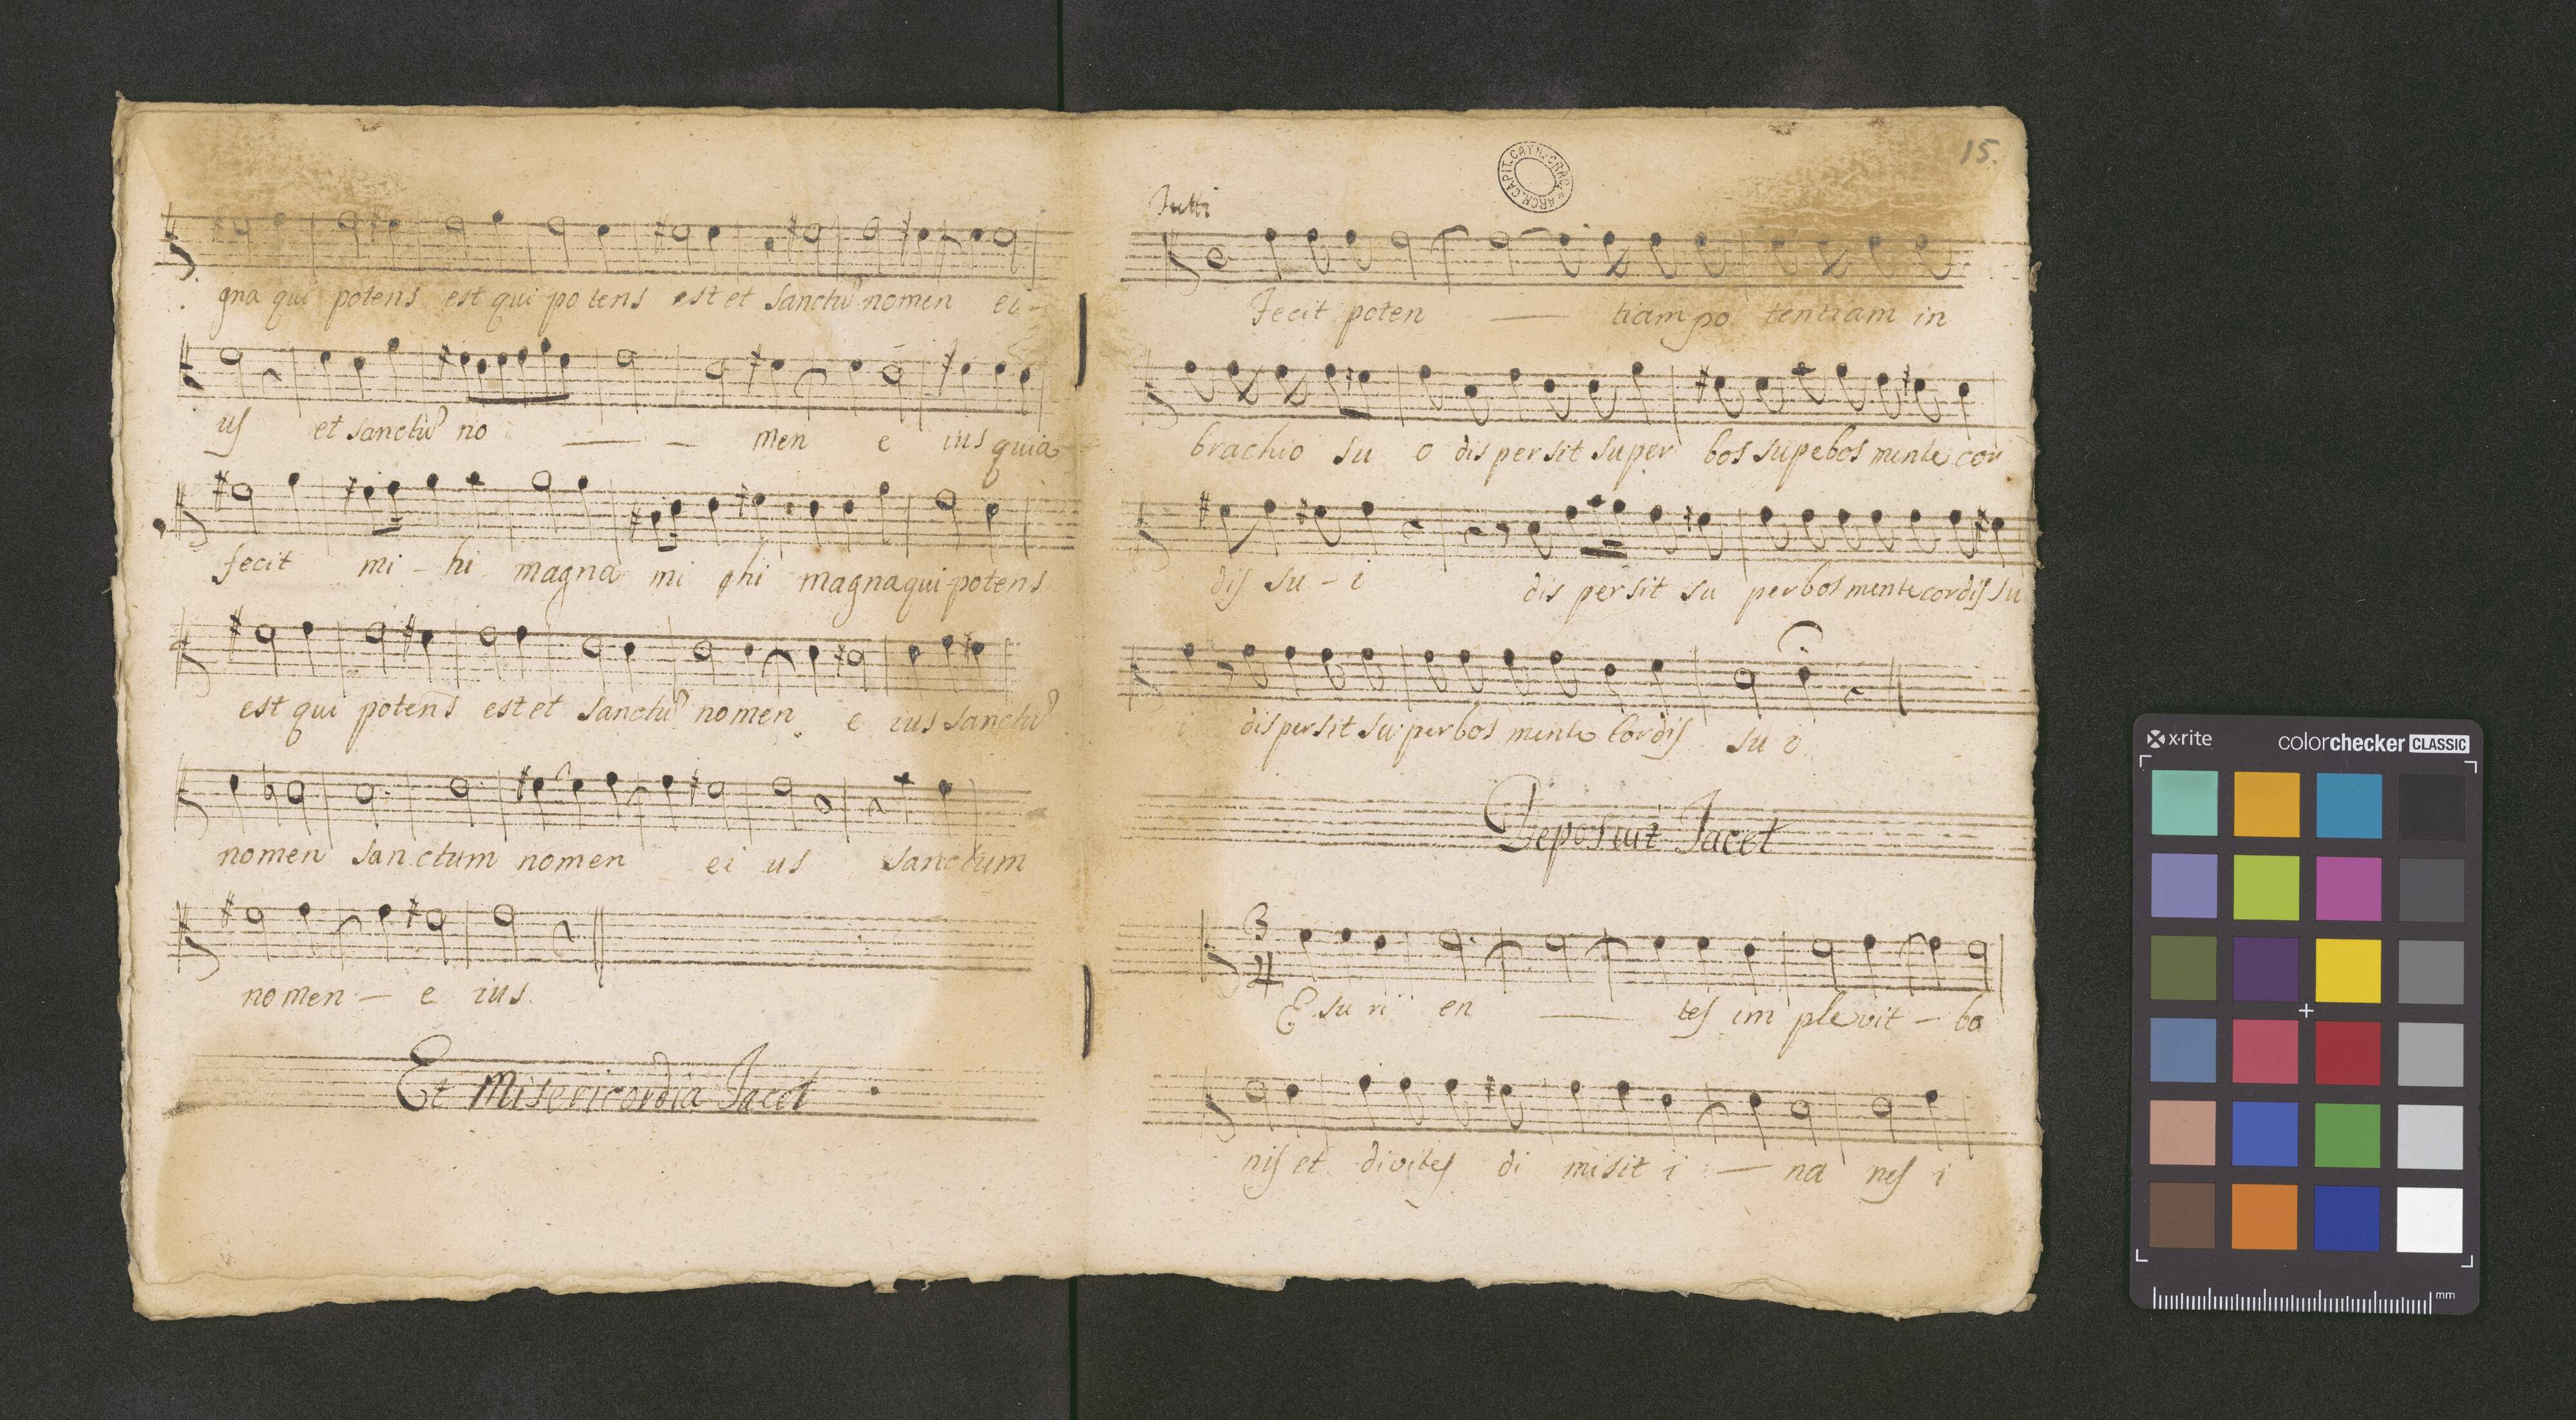 gna qui potens est qui po tens est et sanctũ nomen ei -
us et sanctũ no — — men e ius quia
fecit mi - hi magna mi hi magna qui potens
est qui potens est et sanctũ nomen e ius sanctũ
nomen sanctum nomen ei us sanctum
nomen — e ius
Et Misericordia Jacet
15.
ARCH. CAPIT. CATH. CRAC.
Tutti
Fecit poten — tiam po tentiam in
brachio su o dis persit super bos supebos mente cor
dis su - i dis persit su perbos mente cordis su
i dispersit su perbos mente Cordis su i
Deposuit Jacet
3
4
E su ri en — tes im plevit - bo
nis et divites di misit i — na nes i
x-rite colorchecker CLASSIC
mm